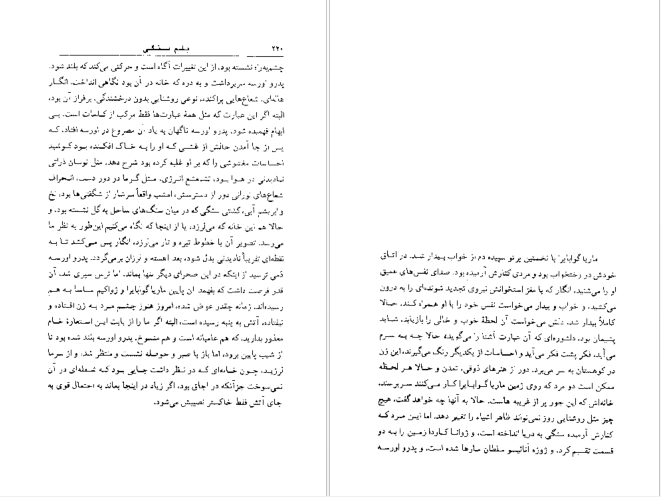 ۲۲۰ بلم سنگی
چشم‌براه نشسته بود، از این تغییرات آگاه است و حرکتی می‌کند که بلند شود.
پدرو اورسه سربرداشت و به دره که خانه در آن بود نگاهی انداخت. انگار
هاله‌ای، شعاع‌هایی پراکنده، نوعی روشنایی بدون درخشندگی، برفراز آن بود،
البته اگر این عبارت که مثل همهٔ عبارت‌ها فقط مرکب از کلمات است، بی
ابهام فهمیده شود. پدرو اورسه ناگهان به یاد آن مصروع در اورسه افتاد، که
پس از جا آمدن حالش از غشی که او را به خاک افکنده، بود کوشید
احساسات مغشوشی را که بر او غلبه کرده بود شرح دهد، مثل نوسان ذراتی
نادیدنی در هوا بود، تشعشع انرژی، مثل گرما در دور دست، انحراف
شعاع‌های نورانی دور از دسترسش، امشب واقعاً سرشار از شگفتی‌ها بود، نخ
و ابریشم آبی، کشتی سنگی که در میان سنگ‌های ساحل به گل نشسته بود، و
حالا هم این خانه که می‌لرزد، یا از اینجا که نگاه می‌کنیم این‌طور به نظر ما
می‌رسد. تصویر آن با خطوط تیره و تار می‌لرزد، انگار پس می‌کشد تا به
نقطه‌ای تقریباً نادیدنی بدل شود، بعد آهسته و لرزان برمی‌گردد. پدرو اورسه
دمی ترسید از اینکه در این صحرای دیگر تنها بماند، اما ترس سپری شد، آن
قدر فرصت داشت که بفهمد آن پایین ماریا گوابایرا و ژواکیم ساسا به هم
رسیده‌اند، زمانه چقدر عوض شده، امروز هنوز چشم مرد به زن افتاده و
نیفتاده، آتش به پنبه رسیده است، البته اگر ما را از بابت این استعارهٔ خام
معذور بدارید، که هم عامیانه است و هم منسوخ. پدرو اورسه بلند شده بود تا
از شیب پایین برود، اما باز با صبر و حوصله نشست و منتظر شد، و از سرما
لرزید، چون خانه‌ای که در نظر داشت جایی بود که شعله‌ای در آن
نمی‌سوخت جزآنکه در اجاق بود، اگر زیاد در اینجا بماند به احتمال قوی به
جای آتش فقط خاکستر نصیبش می‌شود.
ماریا گوابایرا با نخستین پرتو سپیده دم از خواب بیدار شد. در اتاق
خودش در رختخواب بود و مردی کنارش آرمیده بود. صدای نفس‌های عمیق
او را می‌شنید، انگار که با مغز استخوانش نیروی تجدید شونده‌ای را به درون
می‌کشید، و خواب و بیدار می‌خواست نفس خود را با او همراه کند. حالا
کاملاً بیدار شد. دلش می‌خواست آن لحظهٔ خوب و خالی را بازیابد، شاید
پشیمان بود، دلشوره‌ای که آن عبارت آشنا را می‌گوید حالا چه به سرم
می‌آید، فکر پشت فکر می‌آید و احساسات از یکدیگر رنگ می‌گیرند، این زن
در کوهستان به سر می‌برد، دور از هنرهای ذوقی، تمدن و حالا هر لحظه
ممکن است دو مرد که روی زمین ماریا گوابایرا کار می‌کنند سر برسند،
خانه‌اش که این جور پر از غریبه هاست. حالا به آنها چه خواهد گفت، هیچ
چیز مثل روشنایی روز نمی‌تواند ظاهر اشیاء را تغییر دهد. اما این مرد که
کنارش آرمیده سنگی به دریا انداخته است، و ژوانا کاردا زمین را به دو
قسمت تقسیم کرد، و ژوزه آنائیسو سلطان سارها شده است، و پدرو اورسه